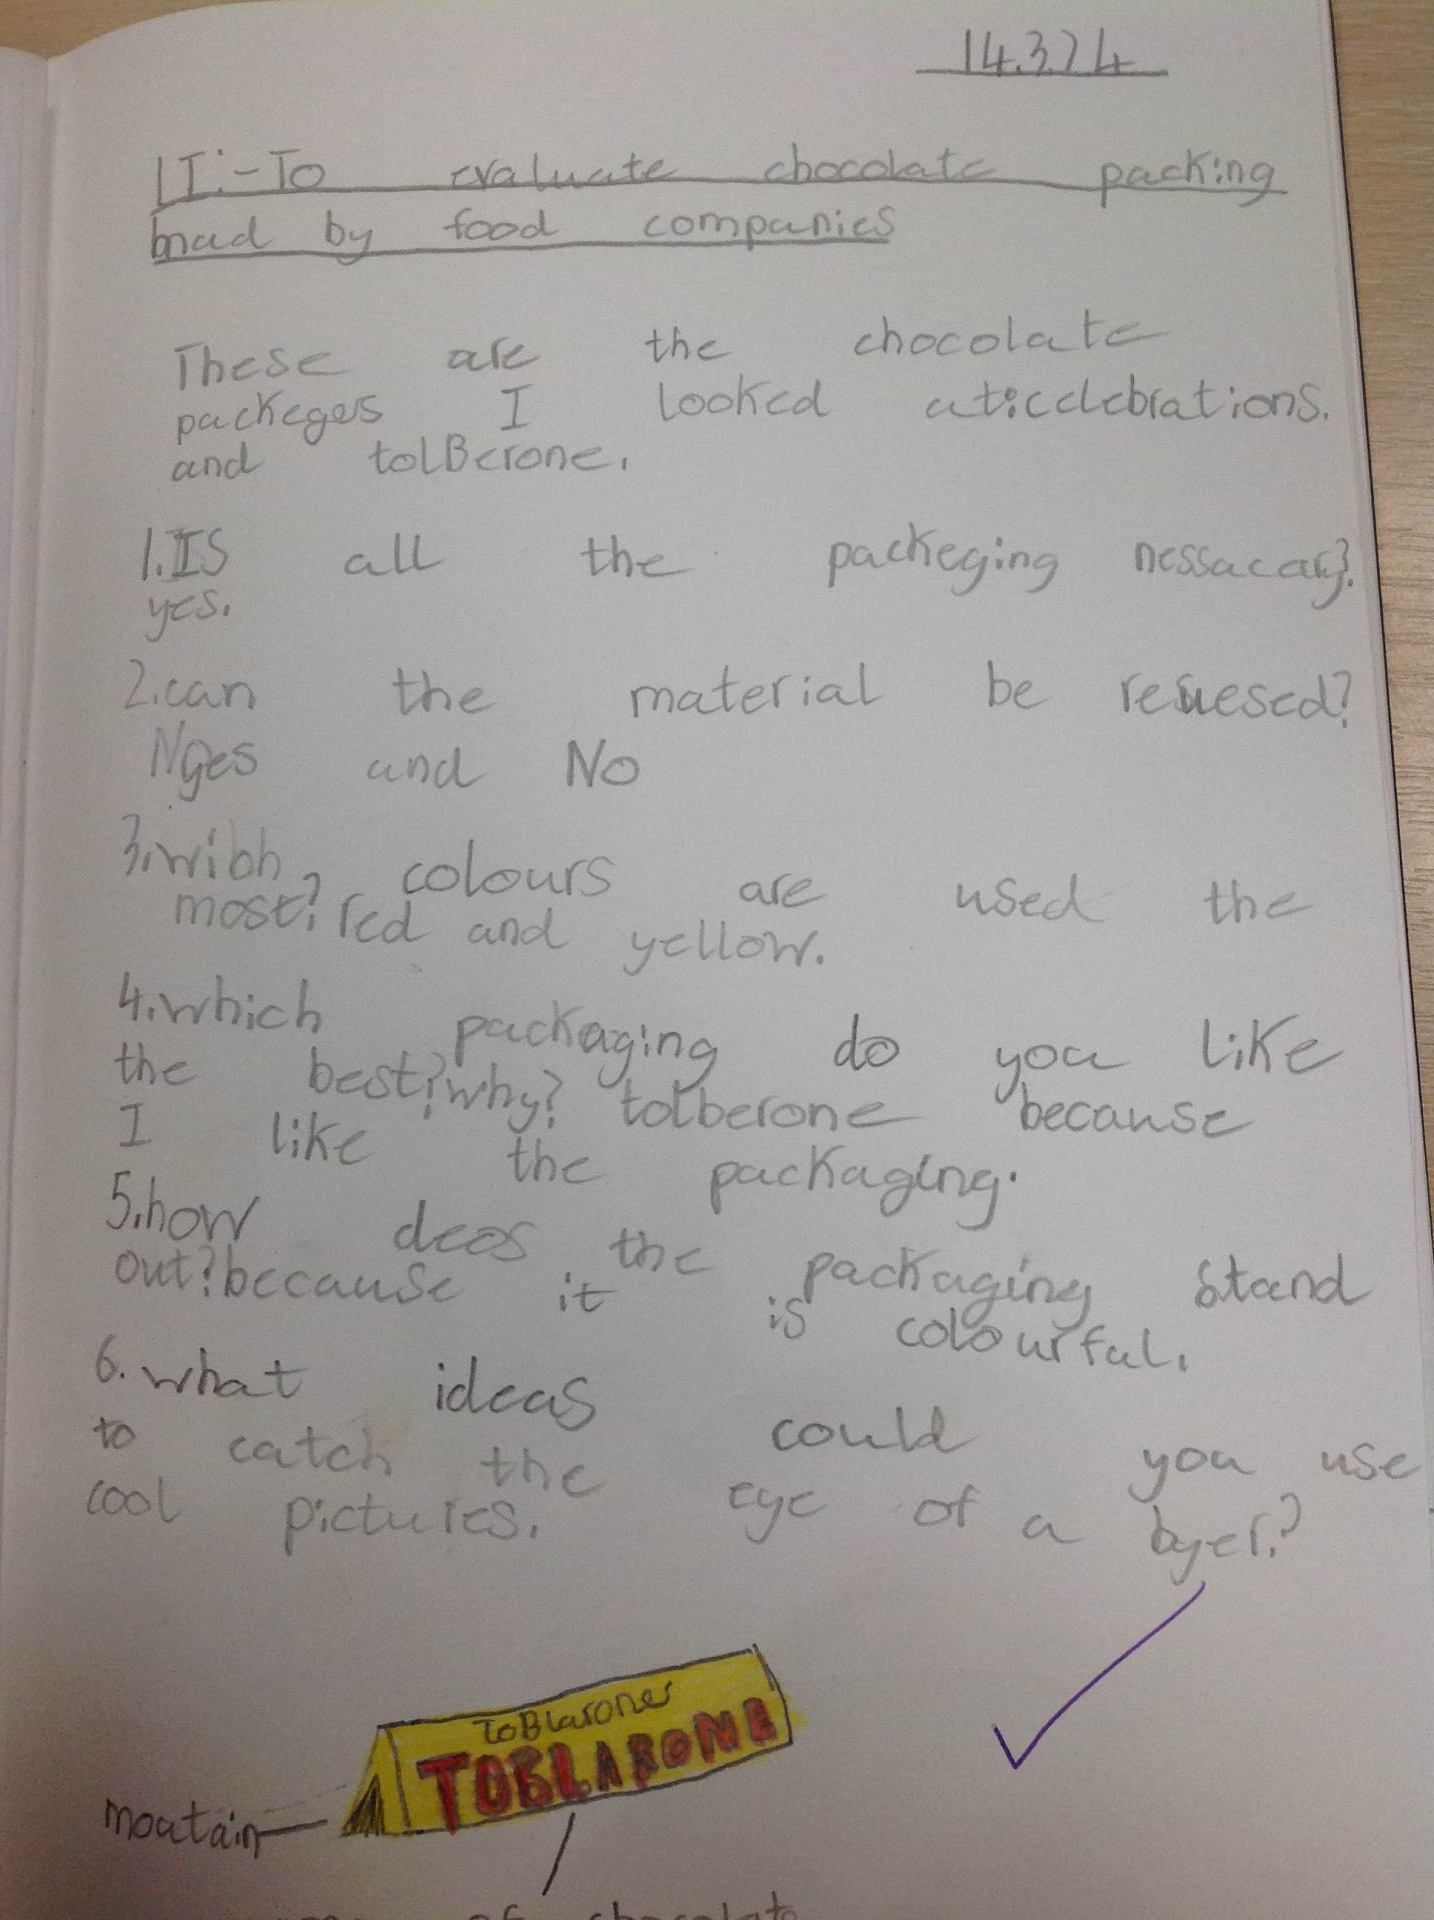 14.3.24
LI:-To evaluate chocolate packing
mad by food companies
These are the chocolate
packeges I looked at:celebrations.
and tolBerone.
1.IS all the packeging nessacary?.
yes.
2.can the material be reuesed?
yes and No
3.wibh colours are used the
most? red and yellow.
4.which packaging do you like
the best?why? tolberone because
I like the packaging.
5.how deos the packaging stand
out?because it is colourful.
6.what ideas could you use
to catch the eye of a byer.?
cool pictures.
ToBlarone
TOBLARONE
moutain
of chocolate